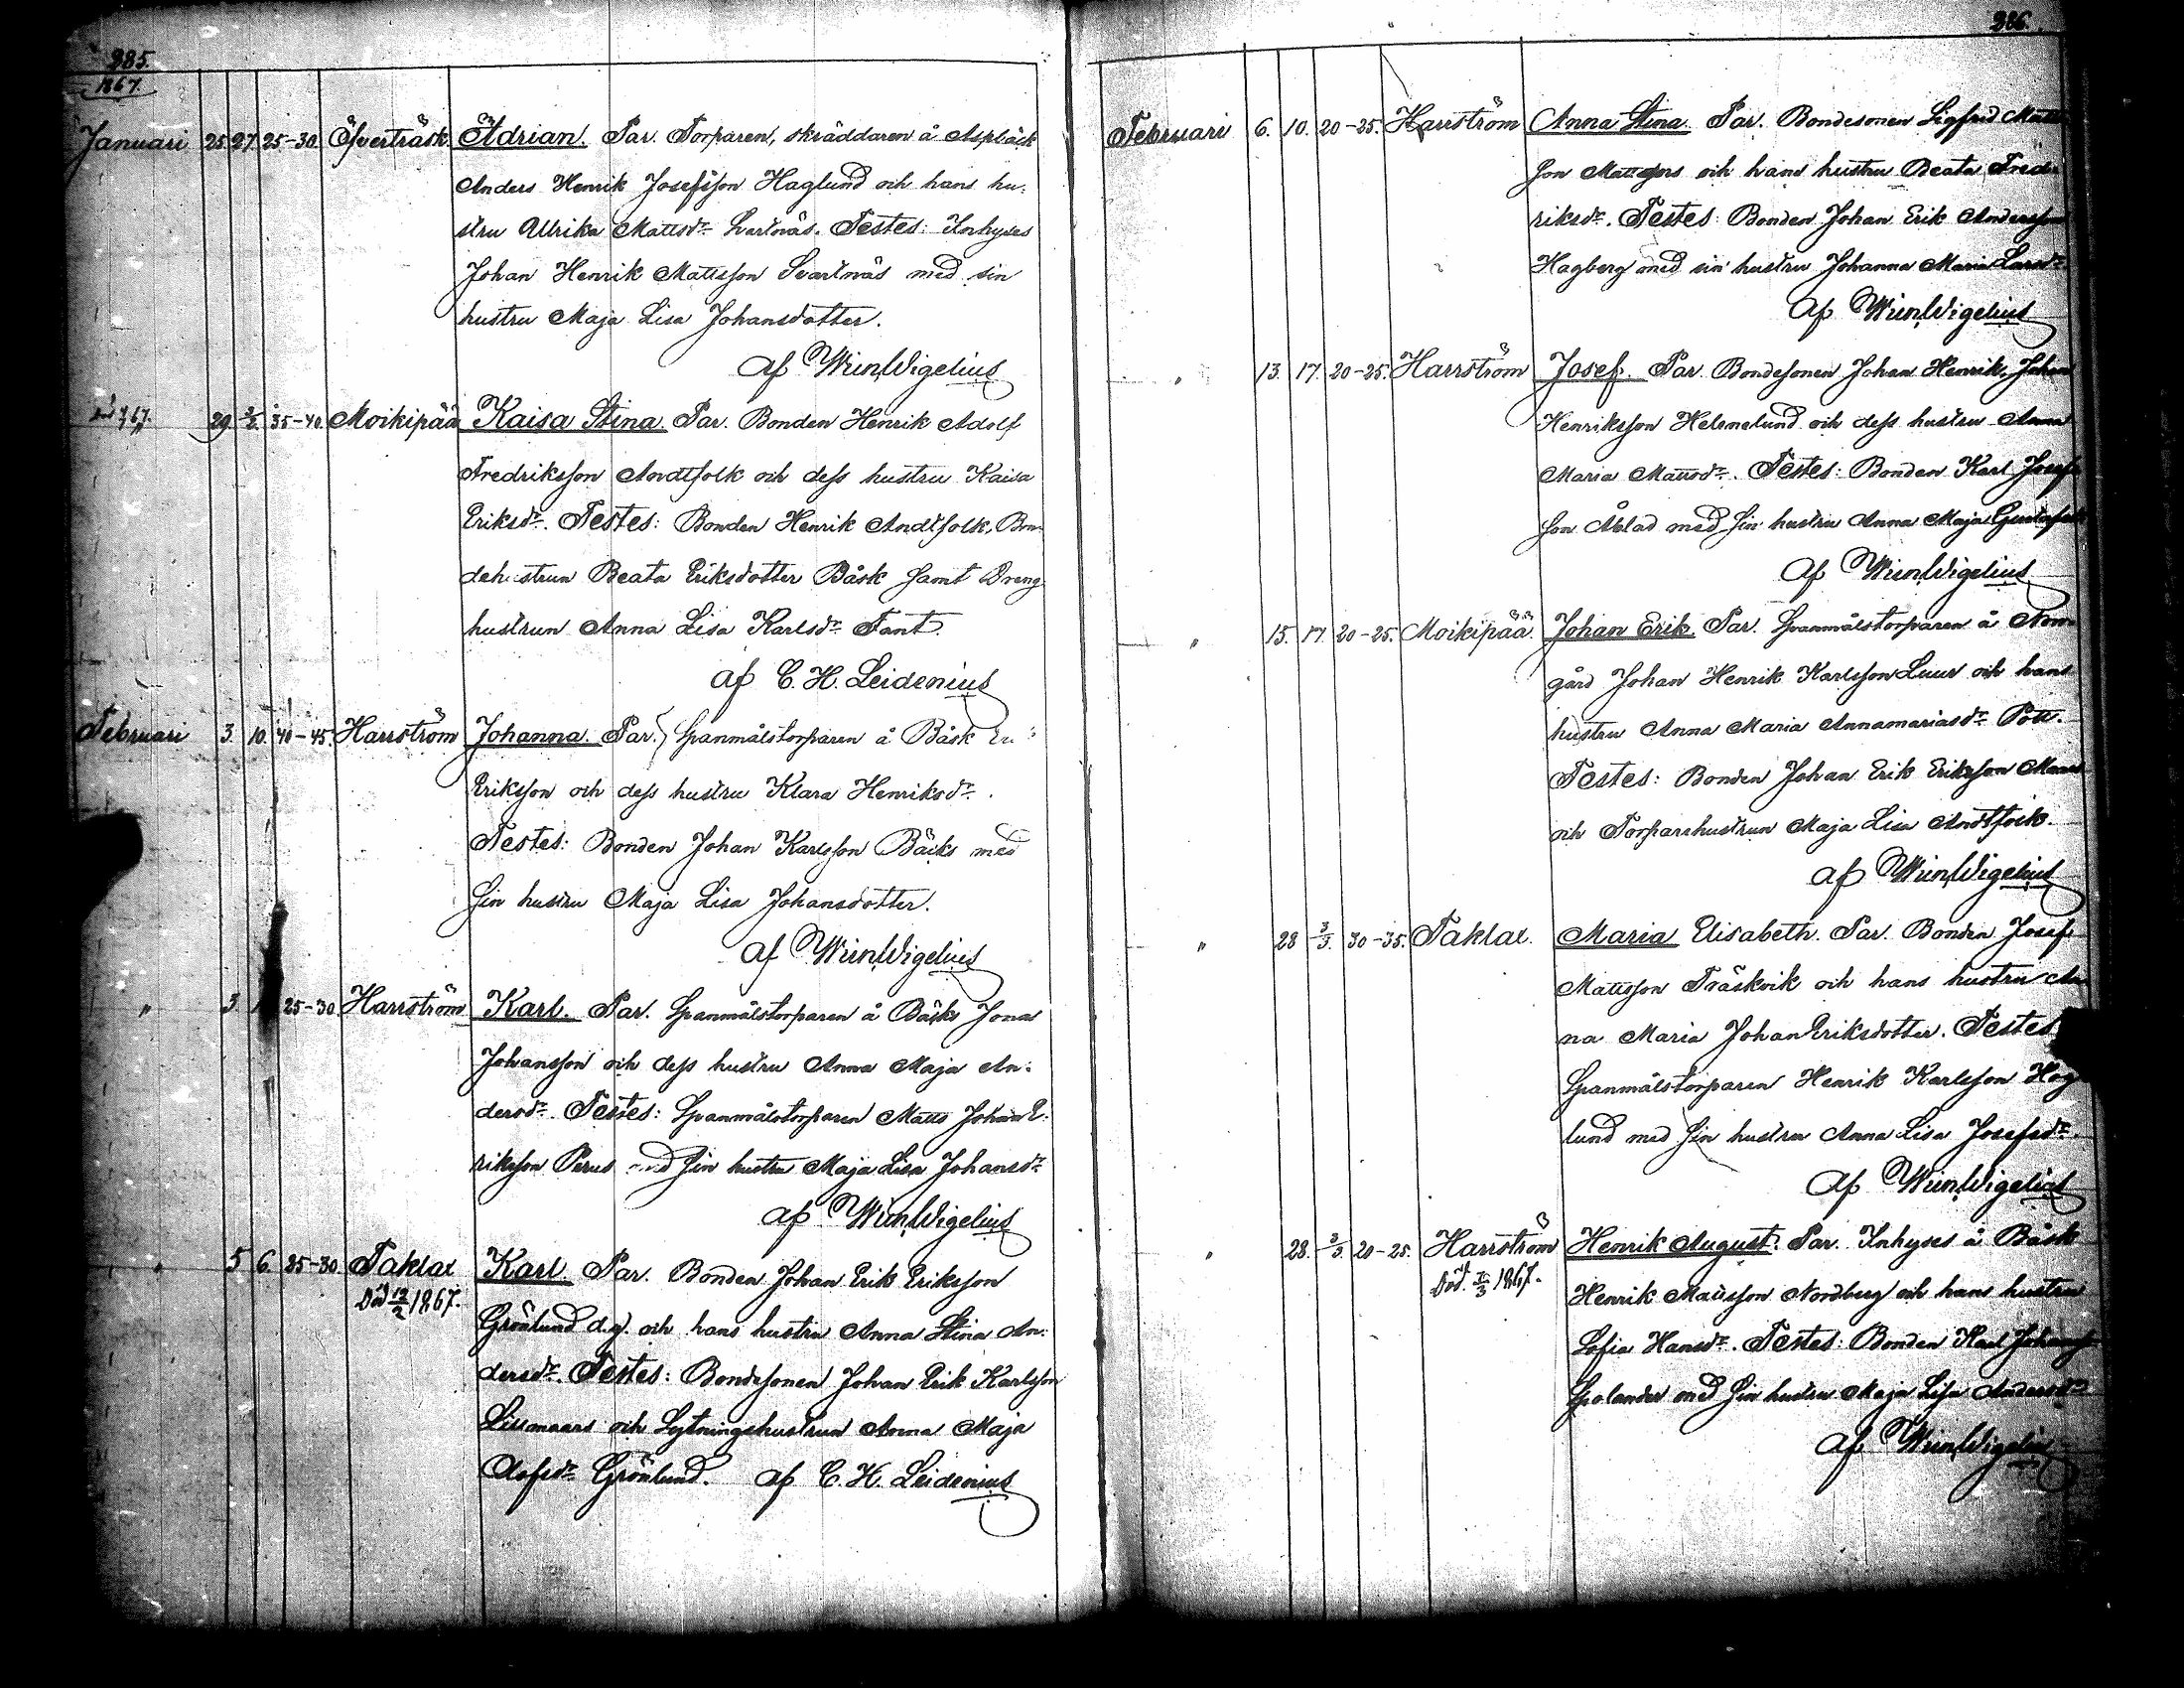 285.
1867.
Januari 25. 27. 25-30. Öfverträsk. Adrian. Par. Torparen, skräddaren å Aspbäck
Anders Henrik Josefsson Haglund och hans hu-
stru Ulrika Mattsdr Svartnäs. Testes: Inhyses
Johan Henrik Mattsson Svartnäs med sin
hustru Maja Lisa Johansdotter.
af WimWigelius
29. 3/2. 35-40. Moikipää Kaisa Stina. Par. Bonden Henrik Adolf
Fredriksson Andtfolk och dess hustru Kaisa
Eriksdr. Testes: Bonden Henrik Andtfolk, Bon-
dehustrun Beata Eriksdotter Båsk samt Dreng
hustrun Anna Lisa Karlsdr Fant.
af C. H. Leidenius
Februari 3. 10. 40-45. Harrström Johanna. Par. Spanmålstorparen å Båsk
Eriksson och dess hustru Klara Henriksdr.
Testes: Bonden Johan Karlsson Bäcks med
sin hustru Maja Lisa Johansdotter.
af WimWigelius
" 3. 25-30. Harrström Karl. Par. Spanmålstorparen å Bäcks Jonas
Johansson och dess hustru Anna Maja An-
dersdr. Testes: Spanmålstorparen Matts Johan E-
riksson Perus med sin hustru Maja Lisa Johansdr
af WimWigelius
" 5 6. 25-30. Taklax Karl. Par. Bonden Johan Erik Eriksson
Död 12/2 1867.
Grönlund d.y. och hans hustru Anna Stina An-
dersdr. Testes: Bondesonen Johan Erik Karlsson
Lissmaars och Lytningshustrun Anna Maja
Olofsdr Grönlund. af C. H. Leidenius
286.
Februari 6. 10. 20-25. Harrström Anna Stina. Par. Bondesonen Sigfrid Matts
son Mattgers och hans hustru Beata Fred-
riksdr. Testes: Bonden Johan Erik Andersson
Hagberg med sin hustru Johanna Maria Larsdr.
af WimWigelius
" 13. 17. 20-25. Harrström Josef. Par. Bondesonen Johan Henrik Johan
Henriksson Helenelund och dess hustru Anna
Maria Mattsdr. Testes: Bonden Karl Josefs
son Åblad med sin hustru Anna Maja
af WimWigelius
" 15. 17. 20-25. Moikipää. Johan Erik. Par. Spanmålstorparen å Norr-
gård Johan Henrik Karlsson Luur och hans
hustru Anna Maria Annamariasdr Pott.
Testes: Bonden Johan Erik Eriksson
och Torparehustrun Maja Lisa Andtfolk.
af WimWigelius
" 28 3/3. 30-35. Taklax. Maria Elisabeth. Par. Bonden Josef
Mattsson Träskvik och hans hustru An
na Maria JohanEriksdotter. Testes
Spanmålstorparen Henrik Karlsson Hög
lund med sin hustru Anna Lisa Josefsdr.
af WimWigelius
" 28. 3/3. 20-25. Harrström Henrik August. Par. Inhyses å Båsk
Död. 1867.
Henrik Mattsson Nordberg och hans hustru
Sofia Hansdr. Testes: Bonden Karl Johans
Spolander med sin hustru Maja Lisa Andersdr
af WimWigelius